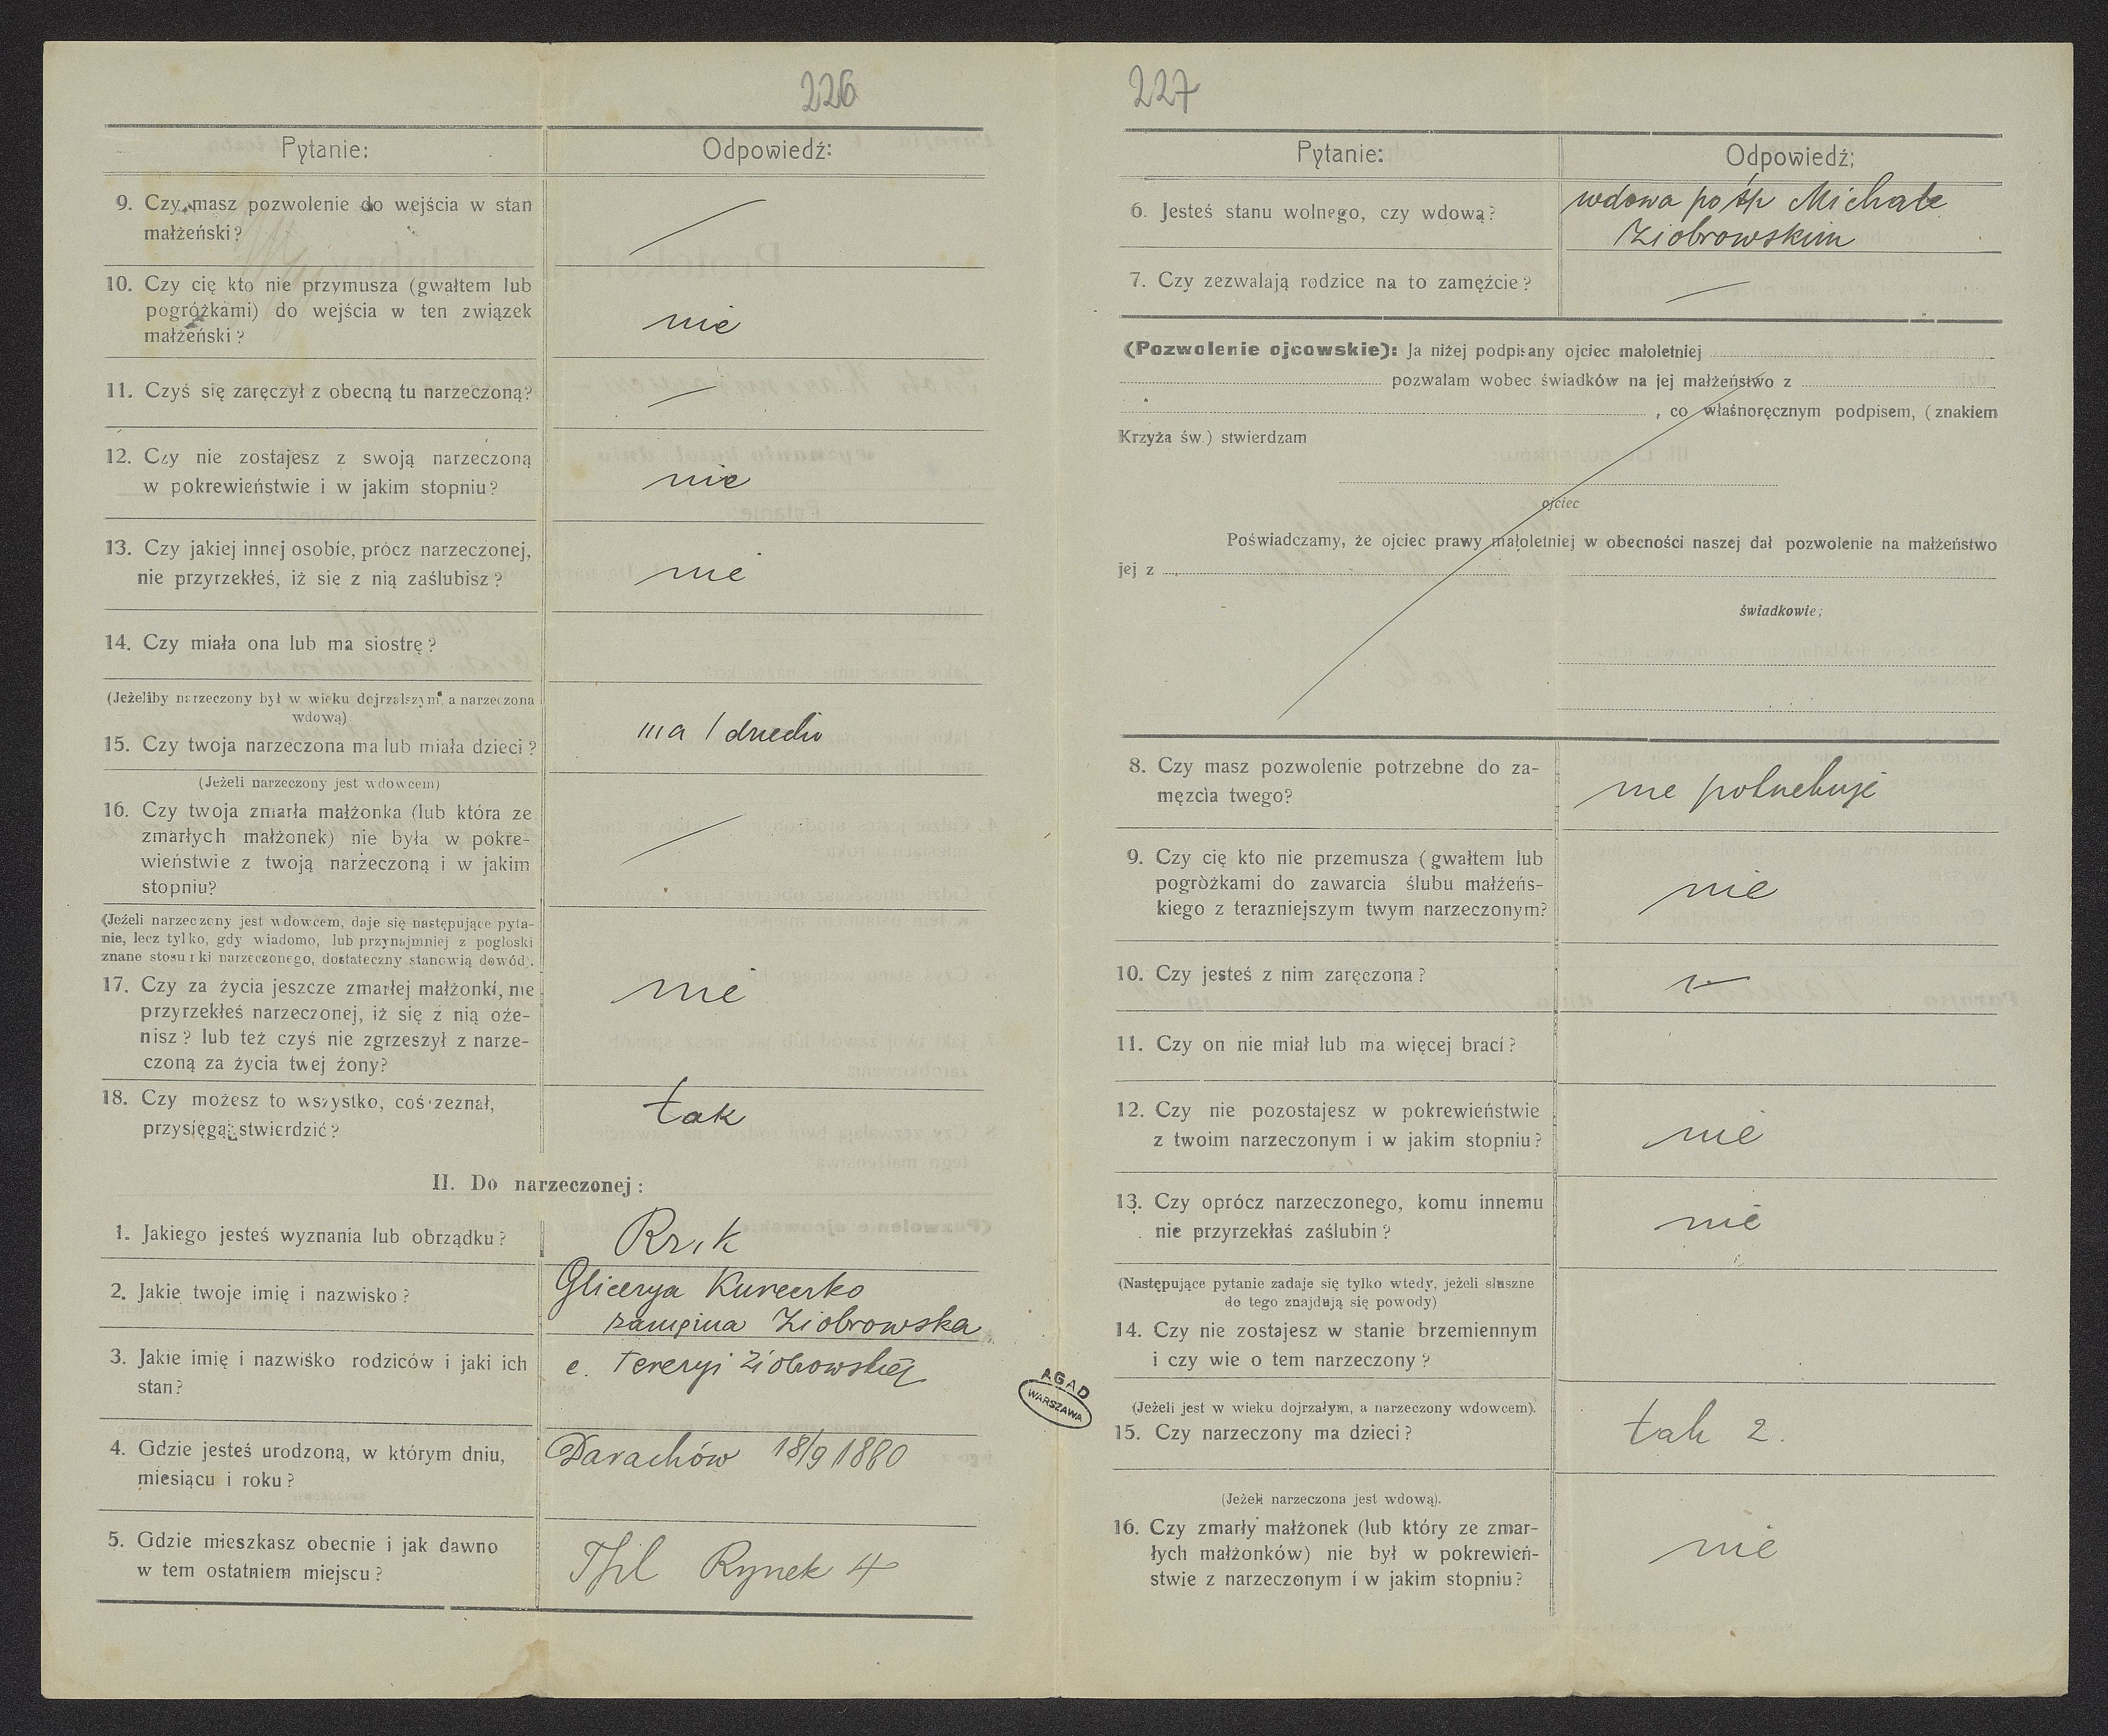 226
Pytanie:
Odpowiedź:
9. Czy masz pozwolenie do wejścia w stan
małżeński?
10. Czy cię kto nie przymusza (gwałtem lub
pogróżkami) do wejścia w ten związek
małżeński?
nie
11. Czyś się zaręczył z obecną tu narzeczoną?
12. Czy nie zostajesz z swoją narzeczoną
w pokrewieństwie i w jakim stopniu?
nie
13. Czy jakiej innej osobie, prócz narzeczonej,
nie przyrzekłeś, iż sie z nią zaślubisz?
nie
14. Czy miała ona lub ma siostrę?
(Jeżeliby narzeczony był w wieku dojrzalszym, a narzeczona
wdową)
15. Czy twoja narzeczona ma lub miała dzieci?
ma 1 dziecko
(Jeżeli narzeczony jest wdowcem)
16. Czy twoja zmarła małżonka (lub która ze
zmarłych małżonek) nie była w pokre-
wieństwie z twoją narzeczoną i w jakim
stopniu?
(Jeżeli narzeczony jest wdowcem, daje się następujące pyta-
nie, lecz tylko, gdy wiadomo, lub przynajmniej z pogłoski
znane stosunki narzeczonego, dostateczny stanowią dowód).
17. Czy za życia jeszcze zmarłej małżonki, nie
przyrzekłeś narzeczonej, iż się z nią oże-
nisz? lub też czyś nie zgrzeszył z narze-
czoną za życia twej żony?
nie
18. Czy możesz to wszystko, coś zeznał,
przysięgą stwierdzić?
tak
II. Do narzeczonej:
1. Jakiego jesteś wyznania lub obrządku?
Rz. k
2. Jakie twoje imię i nazwisko?
Glicerya
zamężna Ziobrowska
3. Jakie imię i nazwisko rodziców i jaki ich
stan?
c. Teresyi Ziobrowskiej
4. Gdzie jesteś urodzoną, w którym dniu,
miesiącu i roku?
Darachów 18/9 1880
5. Gdzie mieszkasz obecnie i jak dawno
w tem ostatniem miejscu?
Tpl Rynek 4
AGAD
WARSZAWA
227
Pytanie:
Odpowiedź:
6. Jesteś stanu wolnego, czy wdową?
wdowa po śp Michale
Ziobrowskim
7. Czy zezwalają rodzice na to zamęźcie?
(Pozwolenie ojcowskie): Ja niżej podpisany ojciec małoletniej
pozwalam wobec świadków na jej małżeństwo z
, co własnoręcznym podpisem, (znakiem
Krzyża św.) stwierdzam
ojciec
Poświadczamy, że ojciec prawy małoletniej w obecności naszej dał pozwolenie na małżeństwo
jej z
świadkowie:
8. Czy masz pozwolenie potrzebne do za-
męzcia twego?
nie potrzebuje
9. Czy cię kto nie przemusza (gwałtem lub
pogróżkami do zawarcia ślubu małżeńs-
kiego z terazniejszym twym narzeczonym?
nie
10. Czy jesteś z nim zaręczona?
11. Czy on nie miał lub ma więcej braci?
12. Czy nie pozostajesz w pokrewieństwie
z twoim narzeczonym i w jakim stopniu?
nie
13. Czy oprócz narzeczonego, komu innemu
nie przyrzekłaś zaślubin?
nie
(Następujące pytanie zadaje się tylko wtedy, jeżeli słuszne
do tego znajdują się powody)
14. Czy nie zostajesz w stanie brzemiennym
i czy wie o tem narzeczony?
(Jeżeli jest w wieku dojrzałym, a narzeczony wdowcem).
15. Czy narzeczony ma dzieci?
tak 2.
(Jeżeli narzeczona jest wdową).
16. Czy zmarły małżonek (lub który ze zmar-
łych małżonków) nie był w pokrewień-
stwie z narzeczonym i w jakim stopniu?
nie